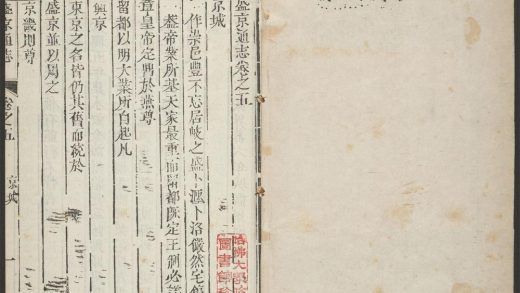 盛京通志卷之五
京城
作崇邑豐不忘居岐之盛卜瀍卜洛儼然宅
蓋帝業所基天家最重而留都既定王制必
章皇帝定鼎於燕尊
留都以明大業所自起凡
興京
東京之名皆仍其舊而統於
盛京並以周之
京畿則尊
盛京通志
卷之五
京城
一
哈佛大學哈
圖書館珍